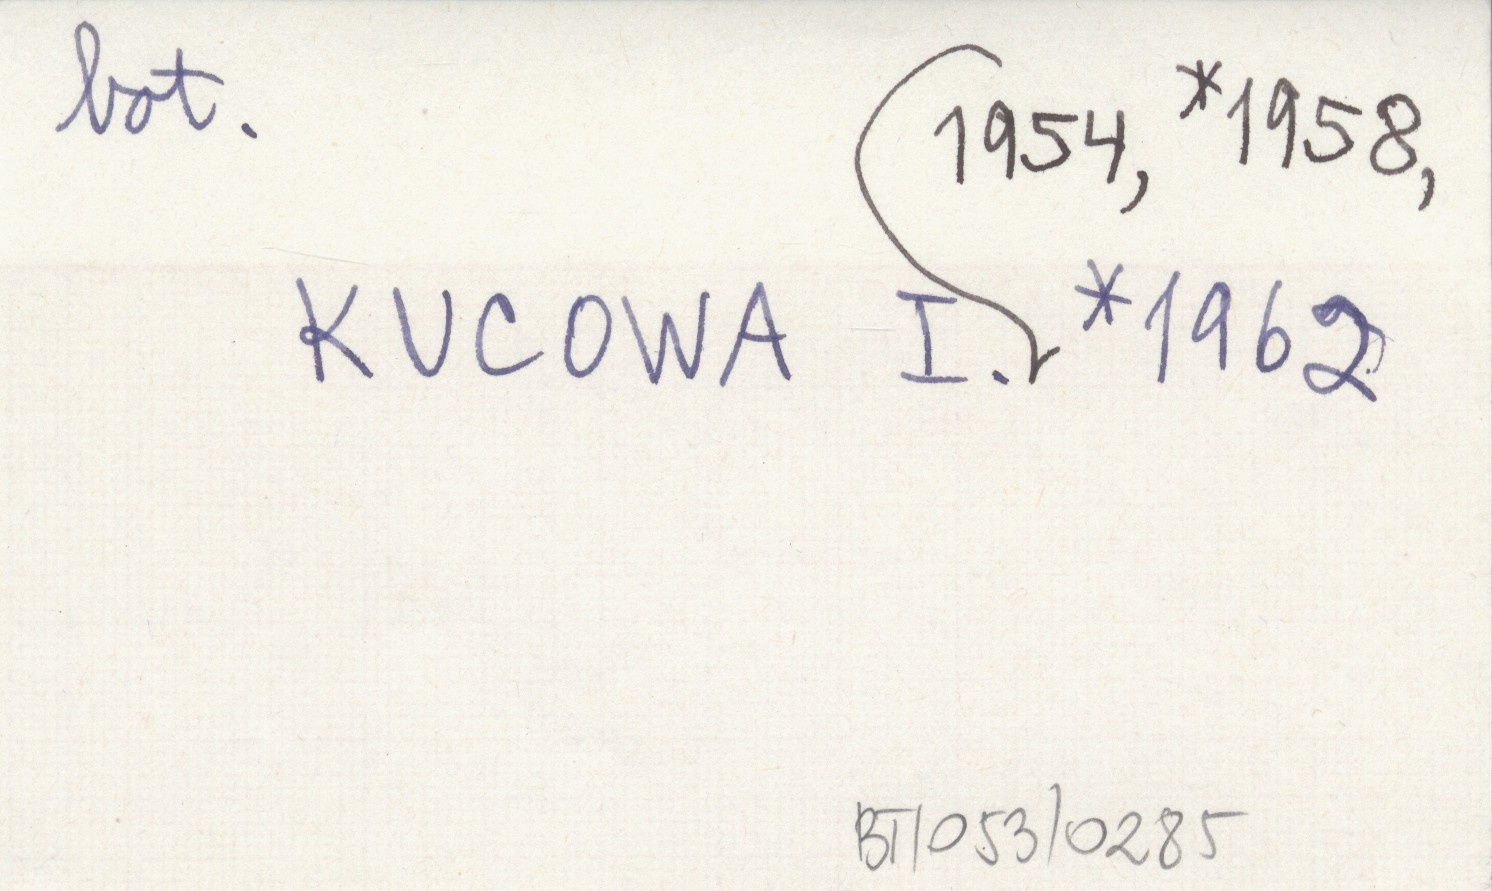 bot.
1954, *1958,
KUCOWA I. *1962
BT/053/0285